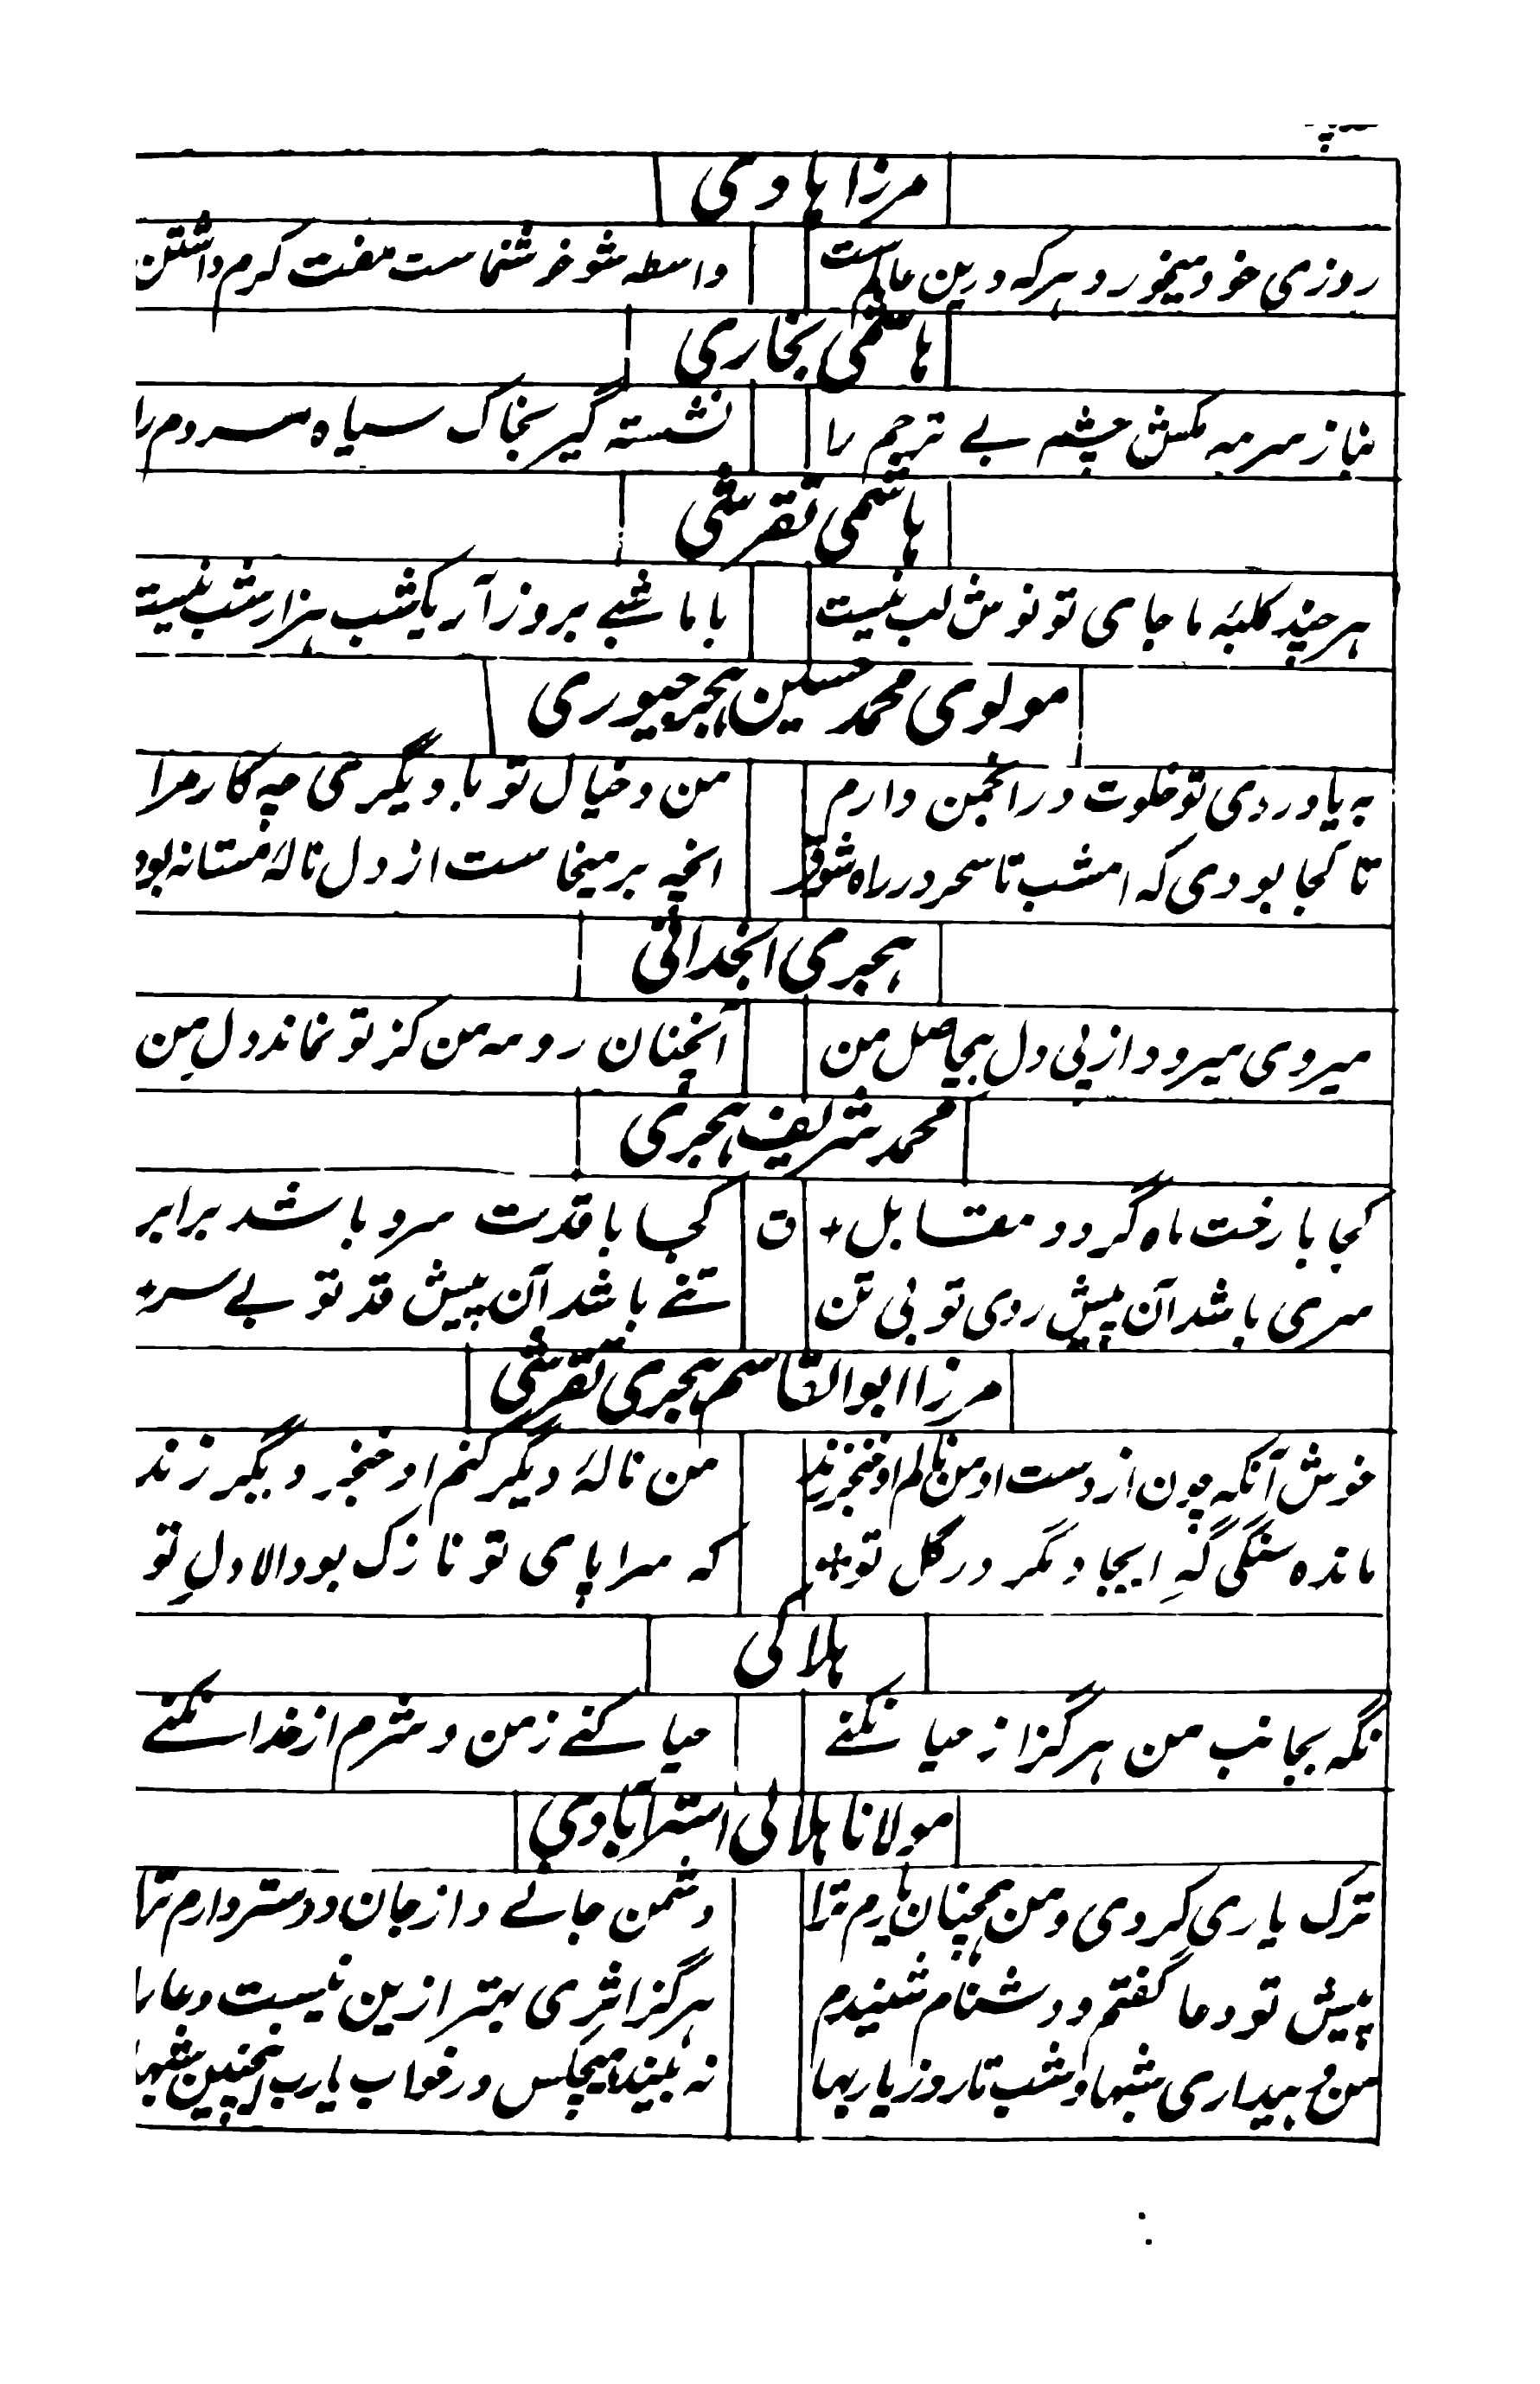 مرزا هادی
روزی خود میخورد هرکه درین عالمست واسطه شو خوشنماست مفت کرم داشتن
هاشمی بخاری
بناز سرمه مکش چشم بے ترحم را نشسته گیر بخاک سیاه مردم را
هاشمی تفریشی
هر چند کلبهٔ ما جای تو نوش لب نیست با ما شبے بروز آر یکشب هزار شب نیست
مولوی محمد حسین هجر جیوری
به یاد روی تو خلوت در انجمن دارم من و خیال تو با دیگری چه کار مرا
تا کجا بودی که امشب تا سحر در راه شوق انچه برمیخاست از دل نالهٔ مستانه بود
هجری انجدانی
میروی میرود از پی دل بیحاصل من آنچنان رو مه من کز تو نماند دل من
محمد شریف هجری
کجا با رخت ماه گردد مقابل ق کجا با قدت سرو باشد برابر
سری باشد آن پیش روی تو بی تن تنے باشد آن پیش قد تو بے سر
مرزا ابوالقاسم هجری تفریشی
خوش آنکه چون از دست او من نالم او خنجر زند من نالهٔ دیگر کنم او خنجر دیگر زند
مانده سنگی گه ایجاد مگر در گل تو که سراپای تو نازک بود الا دل تو
هلاکی
نگه بجانب من هرگز از حیا نکنے حیا کنے ز من و شرم از خدا نکنے
مولانا هلالی استرآبادی
ترک یاری کردی و من همچنان یارم ترا دشمن جانے و از جان دوستر دارم ترا
پیش تو دعا گفتم و دشنام شنیدم هرگز اثری بهتر ازین نیست دعا را
من و بیداری شبها و شب تا روز یاربها نه بیند هیچکس در خواب یارب اینچنین شبها